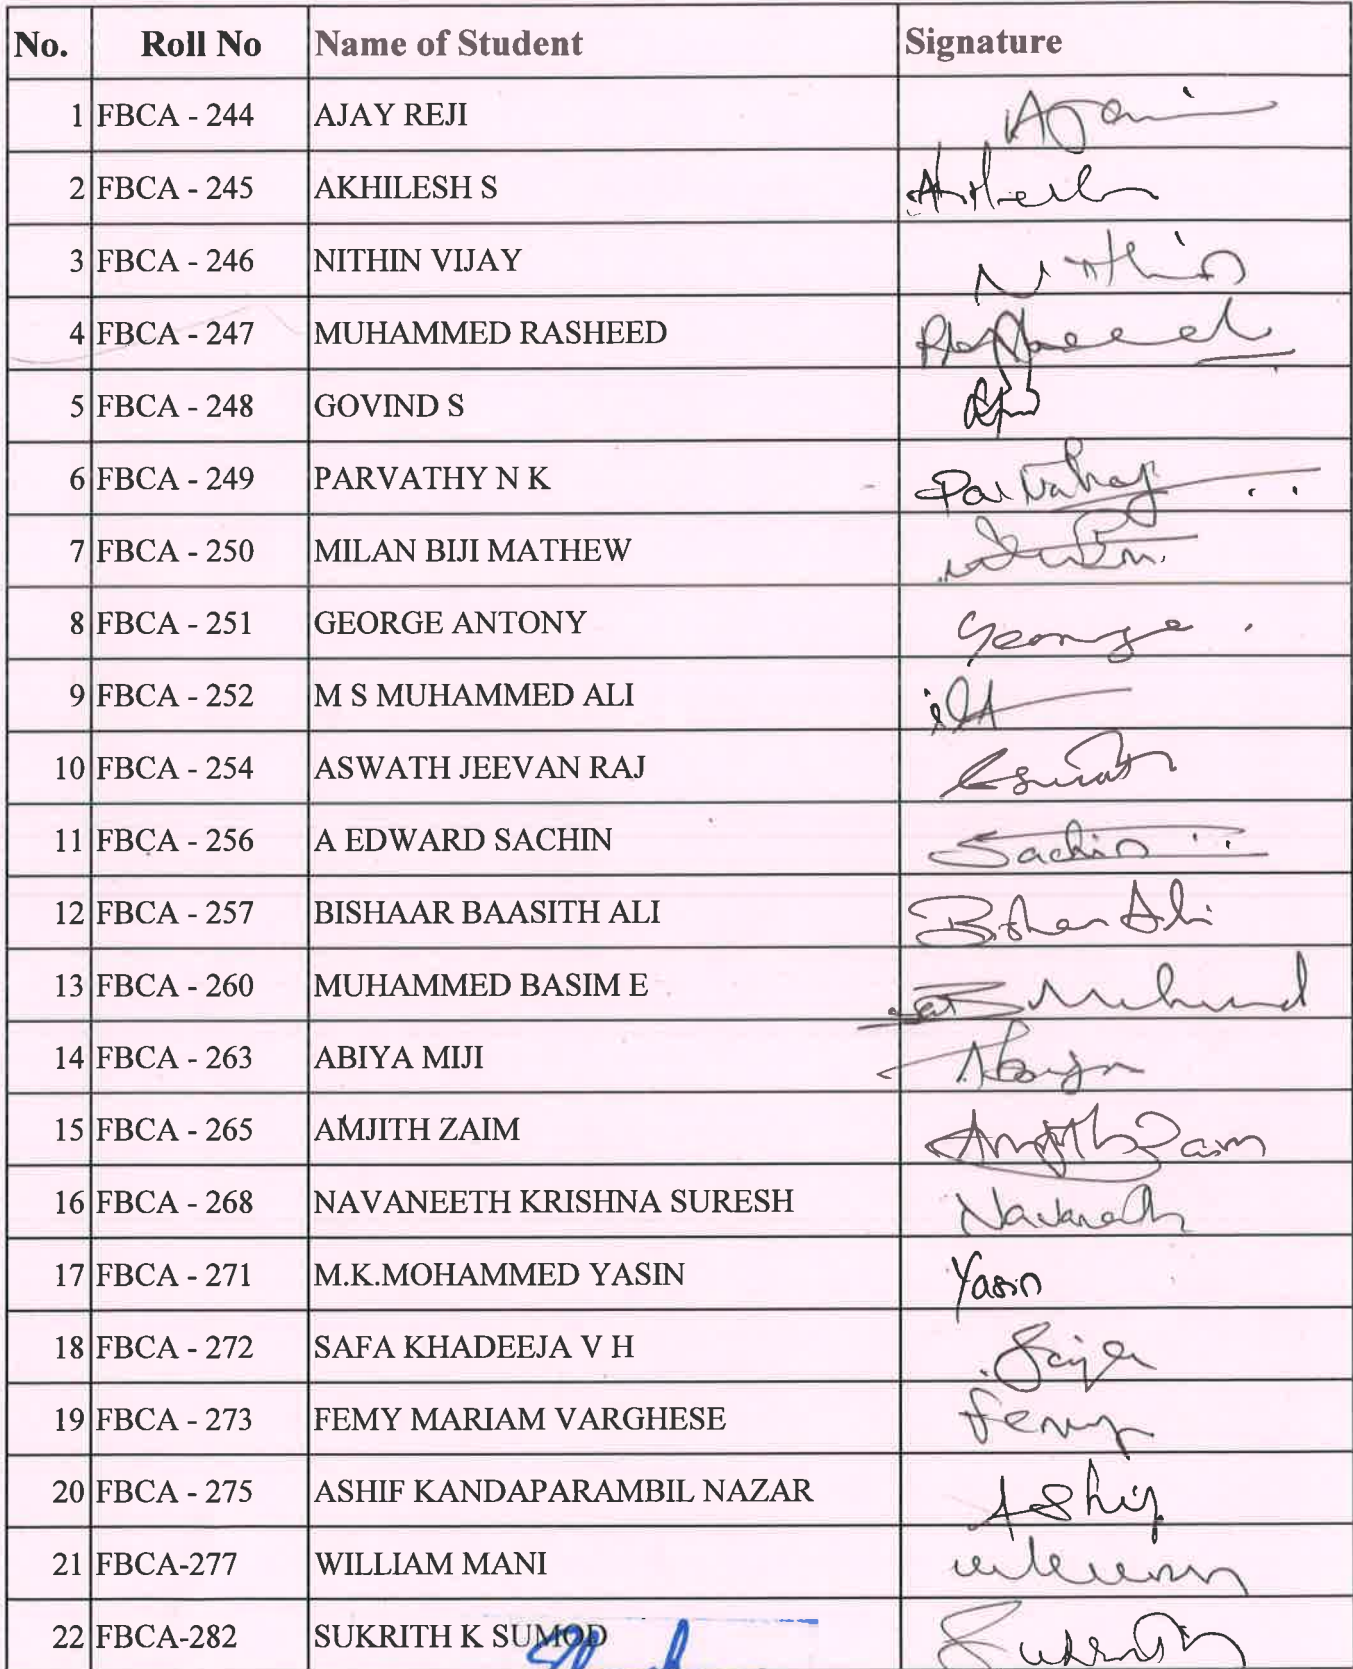 No. Roll No Name of Student Signature
1 FBCA - 244 AJAY REJI
2 FBCA - 245 AKHILESH S
3 FBCA - 246 NITHIN VIJAY Nithin
4 FBCA - 247 MUHAMMED RASHEED
5 FBCA - 248 GOVIND S
6 FBCA - 249 PARVATHY N K Parvathy
7 FBCA - 250 MILAN BIJI MATHEW
8 FBCA - 251 GEORGE ANTONY George
9 FBCA - 252 M S MUHAMMED ALI
10 FBCA - 254 ASWATH JEEVAN RAJ Aswath
11 FBCA - 256 A EDWARD SACHIN Sachin
12 FBCA - 257 BISHAAR BAASITH ALI
13 FBCA - 260 MUHAMMED BASIM E
14 FBCA - 263 ABIYA MIJI
15 FBCA - 265 AMJITH ZAIM Amjith Zaim
16 FBCA - 268 NAVANEETH KRISHNA SURESH
17 FBCA - 271 M.K.MOHAMMED YASIN Yasin
18 FBCA - 272 SAFA KHADEEJA V H
19 FBCA - 273 FEMY MARIAM VARGHESE Femy
20 FBCA - 275 ASHIF KANDAPARAMBIL NAZAR Ashif
21 FBCA-277 WILLIAM MANI
22 FBCA-282 SUKRITH K SUMOD Sukrith